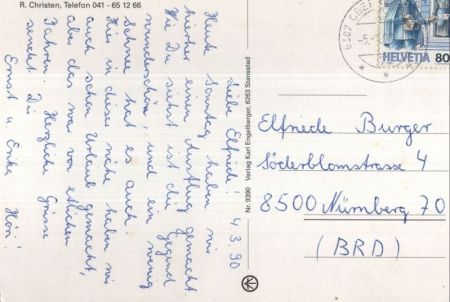 R. Christen, Telefon 041 - 65 12 66
HELVETIA 80
4.3.90
Liebe Elfriede!
Heute Sonntag haben wir
hierher einen Ausflug gemacht.
Wie Du siehst ist die Gegend
wunderschön, und ein wenig
Schnee hat es auch.
Hier in dieser Nähe haben wir
auch schon Urlaub gemacht,
aber das war vor etlichen
Jahren. Herzliche Grüsse
sendet Dir
Ernst u Erika
Nr. 9390 Verlag Karl Engelberger, 6263 Stansstad
Elfriede Burger
Söderblomstrasse 4
8500 Nürnberg 70
(BRD)